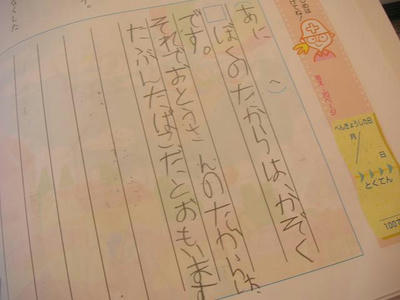 あに
ぼくのたからは、かぞく
です。
それでおとうさんのたからは、
たぶんたばこだとおもいます
べんきょうした日
月
日
とくてん
100てん